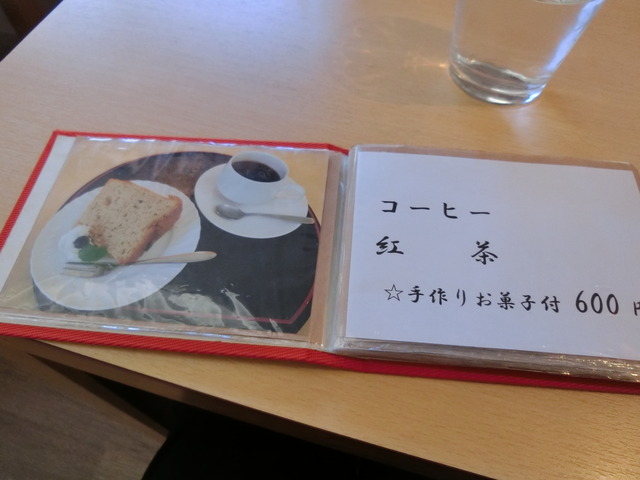 コーヒー
紅 茶
☆手作りお菓子付 600円